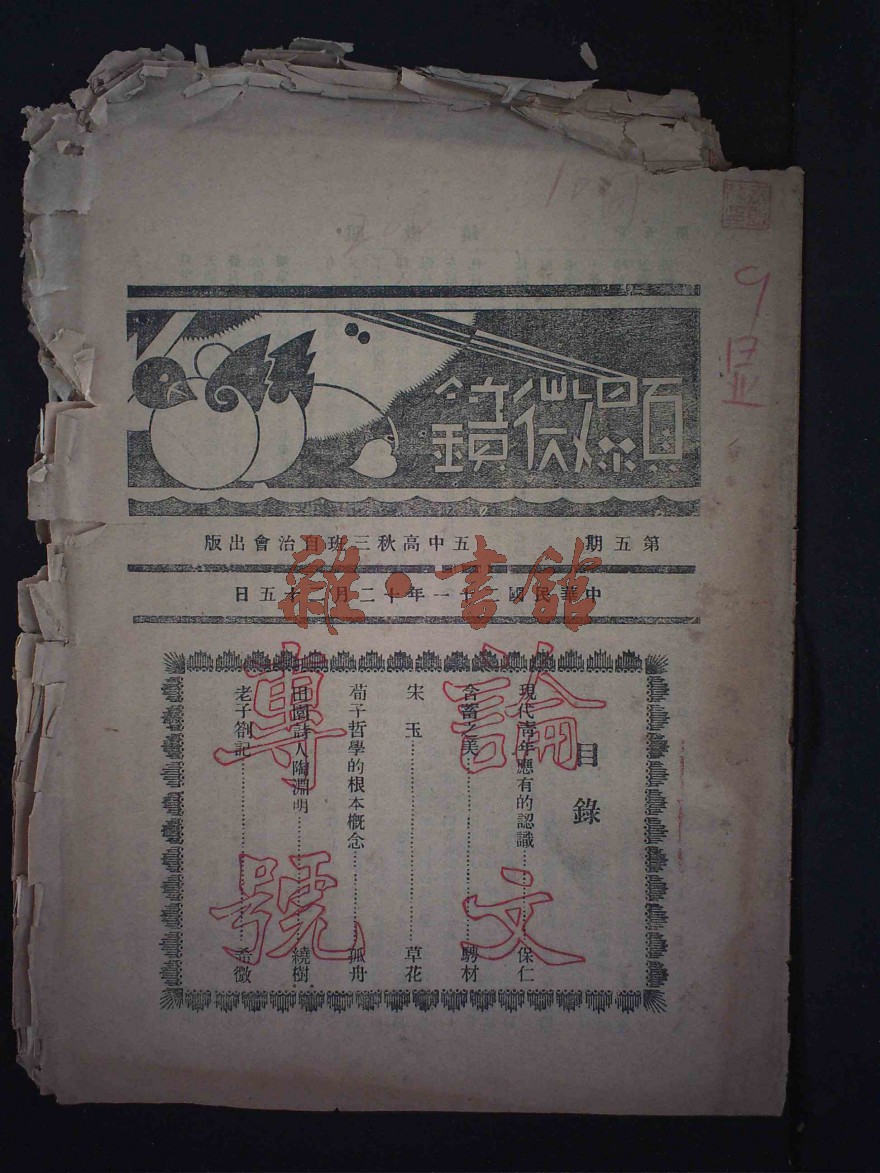 顯微鏡
第五期　五中高秋三班自治會出版
中華民國二十一年十二月二十五日
雜·書館
論文專號
目錄
現代青年應有的認識……保仁
含蓄之美……騁材
宋玉……草花
荀子哲學的根本概念……孤舟
田園詩人陶淵明……繞樹
老子劄記……希微
9
显